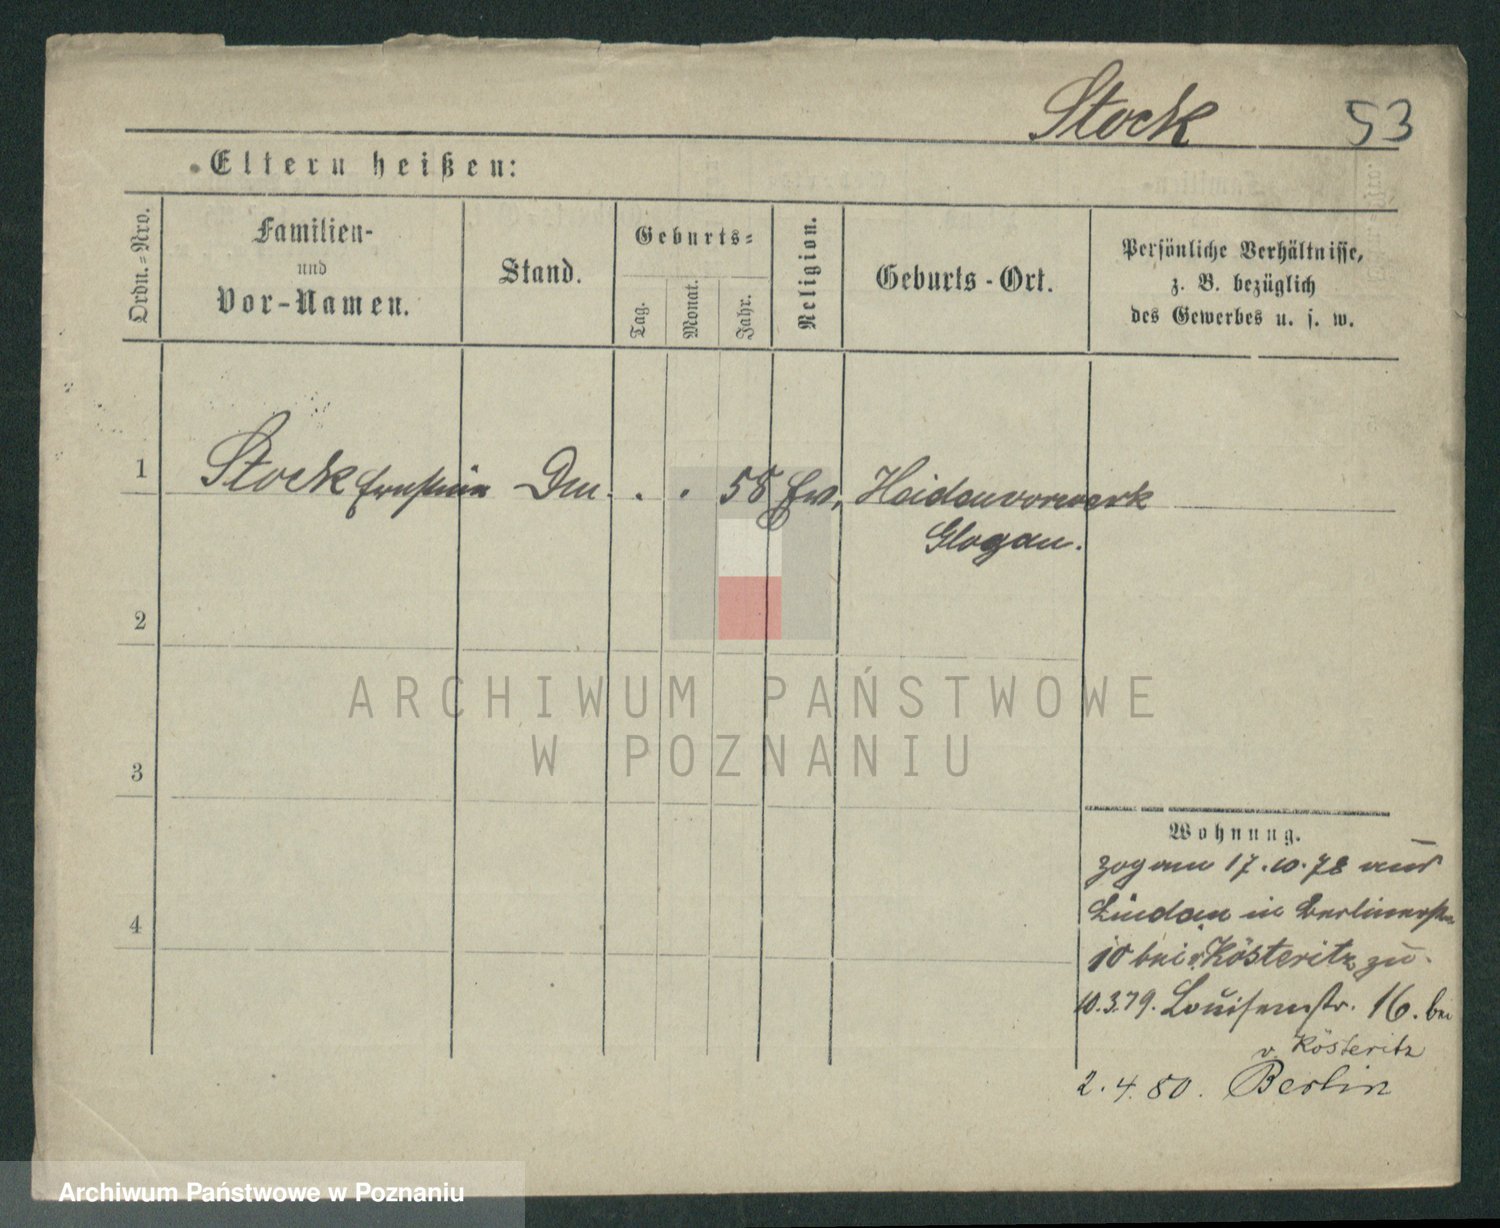 Stock 53
Eltern heißen:
Ordn.=Nro.
Familien-
und
Vor-Namen.
Stand.
Geburts=
Tag.
Monat.
Jahr.
Religion.
Geburts-Ort.
Persönliche Verhältnisse,
z. B. bezüglich
des Gewerbes u. s. w.
1 Stock Ernstine . . 58 Ev. Heidenvorwerk
Glogau.
2
3
4
Wohnung.
zog am 17.10.78 aus
Lindau in Berlinerstr
10 bei v. Kösteritz zu.
10.3.79. Louisenstr. 16. bei
v. Kösteritz
2.4.80. Berlin
ARCHIWUM PAŃSTWOWE
W POZNANIU
Archiwum Państwowe w Poznaniu